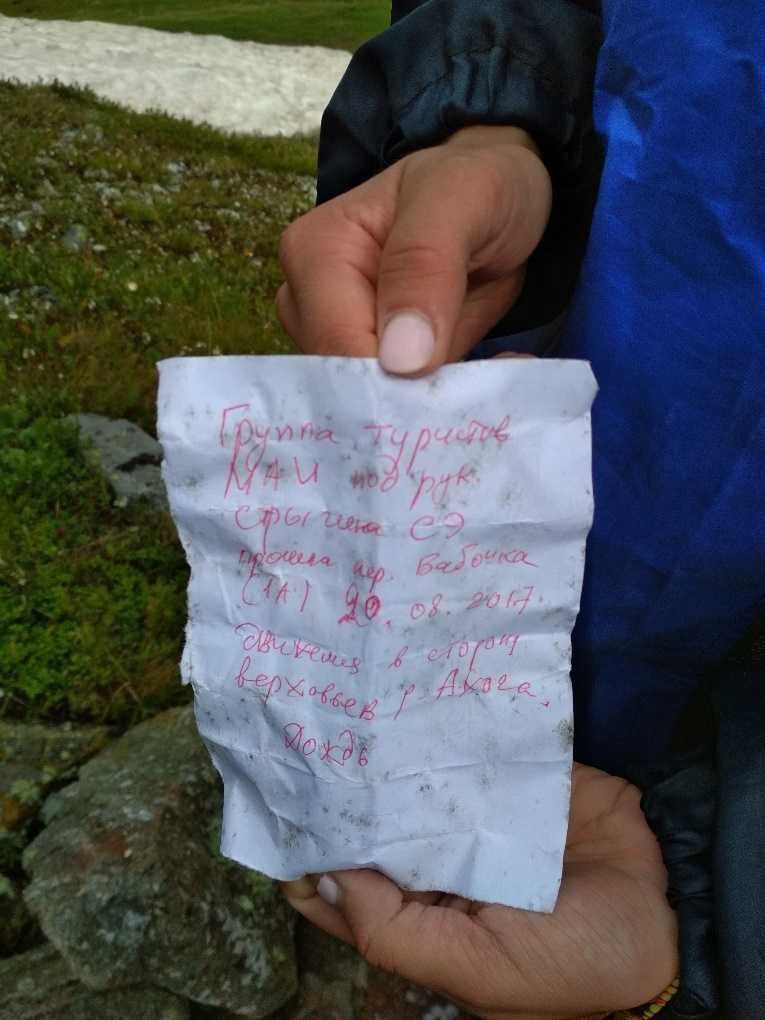 Группа туристов
МАИ под рук.
Стрыгина СЭ
прошла пер. Бабочка
(1А) 20.08.2017
движемся в сторону
верховьев р. Ахога.
Дождь